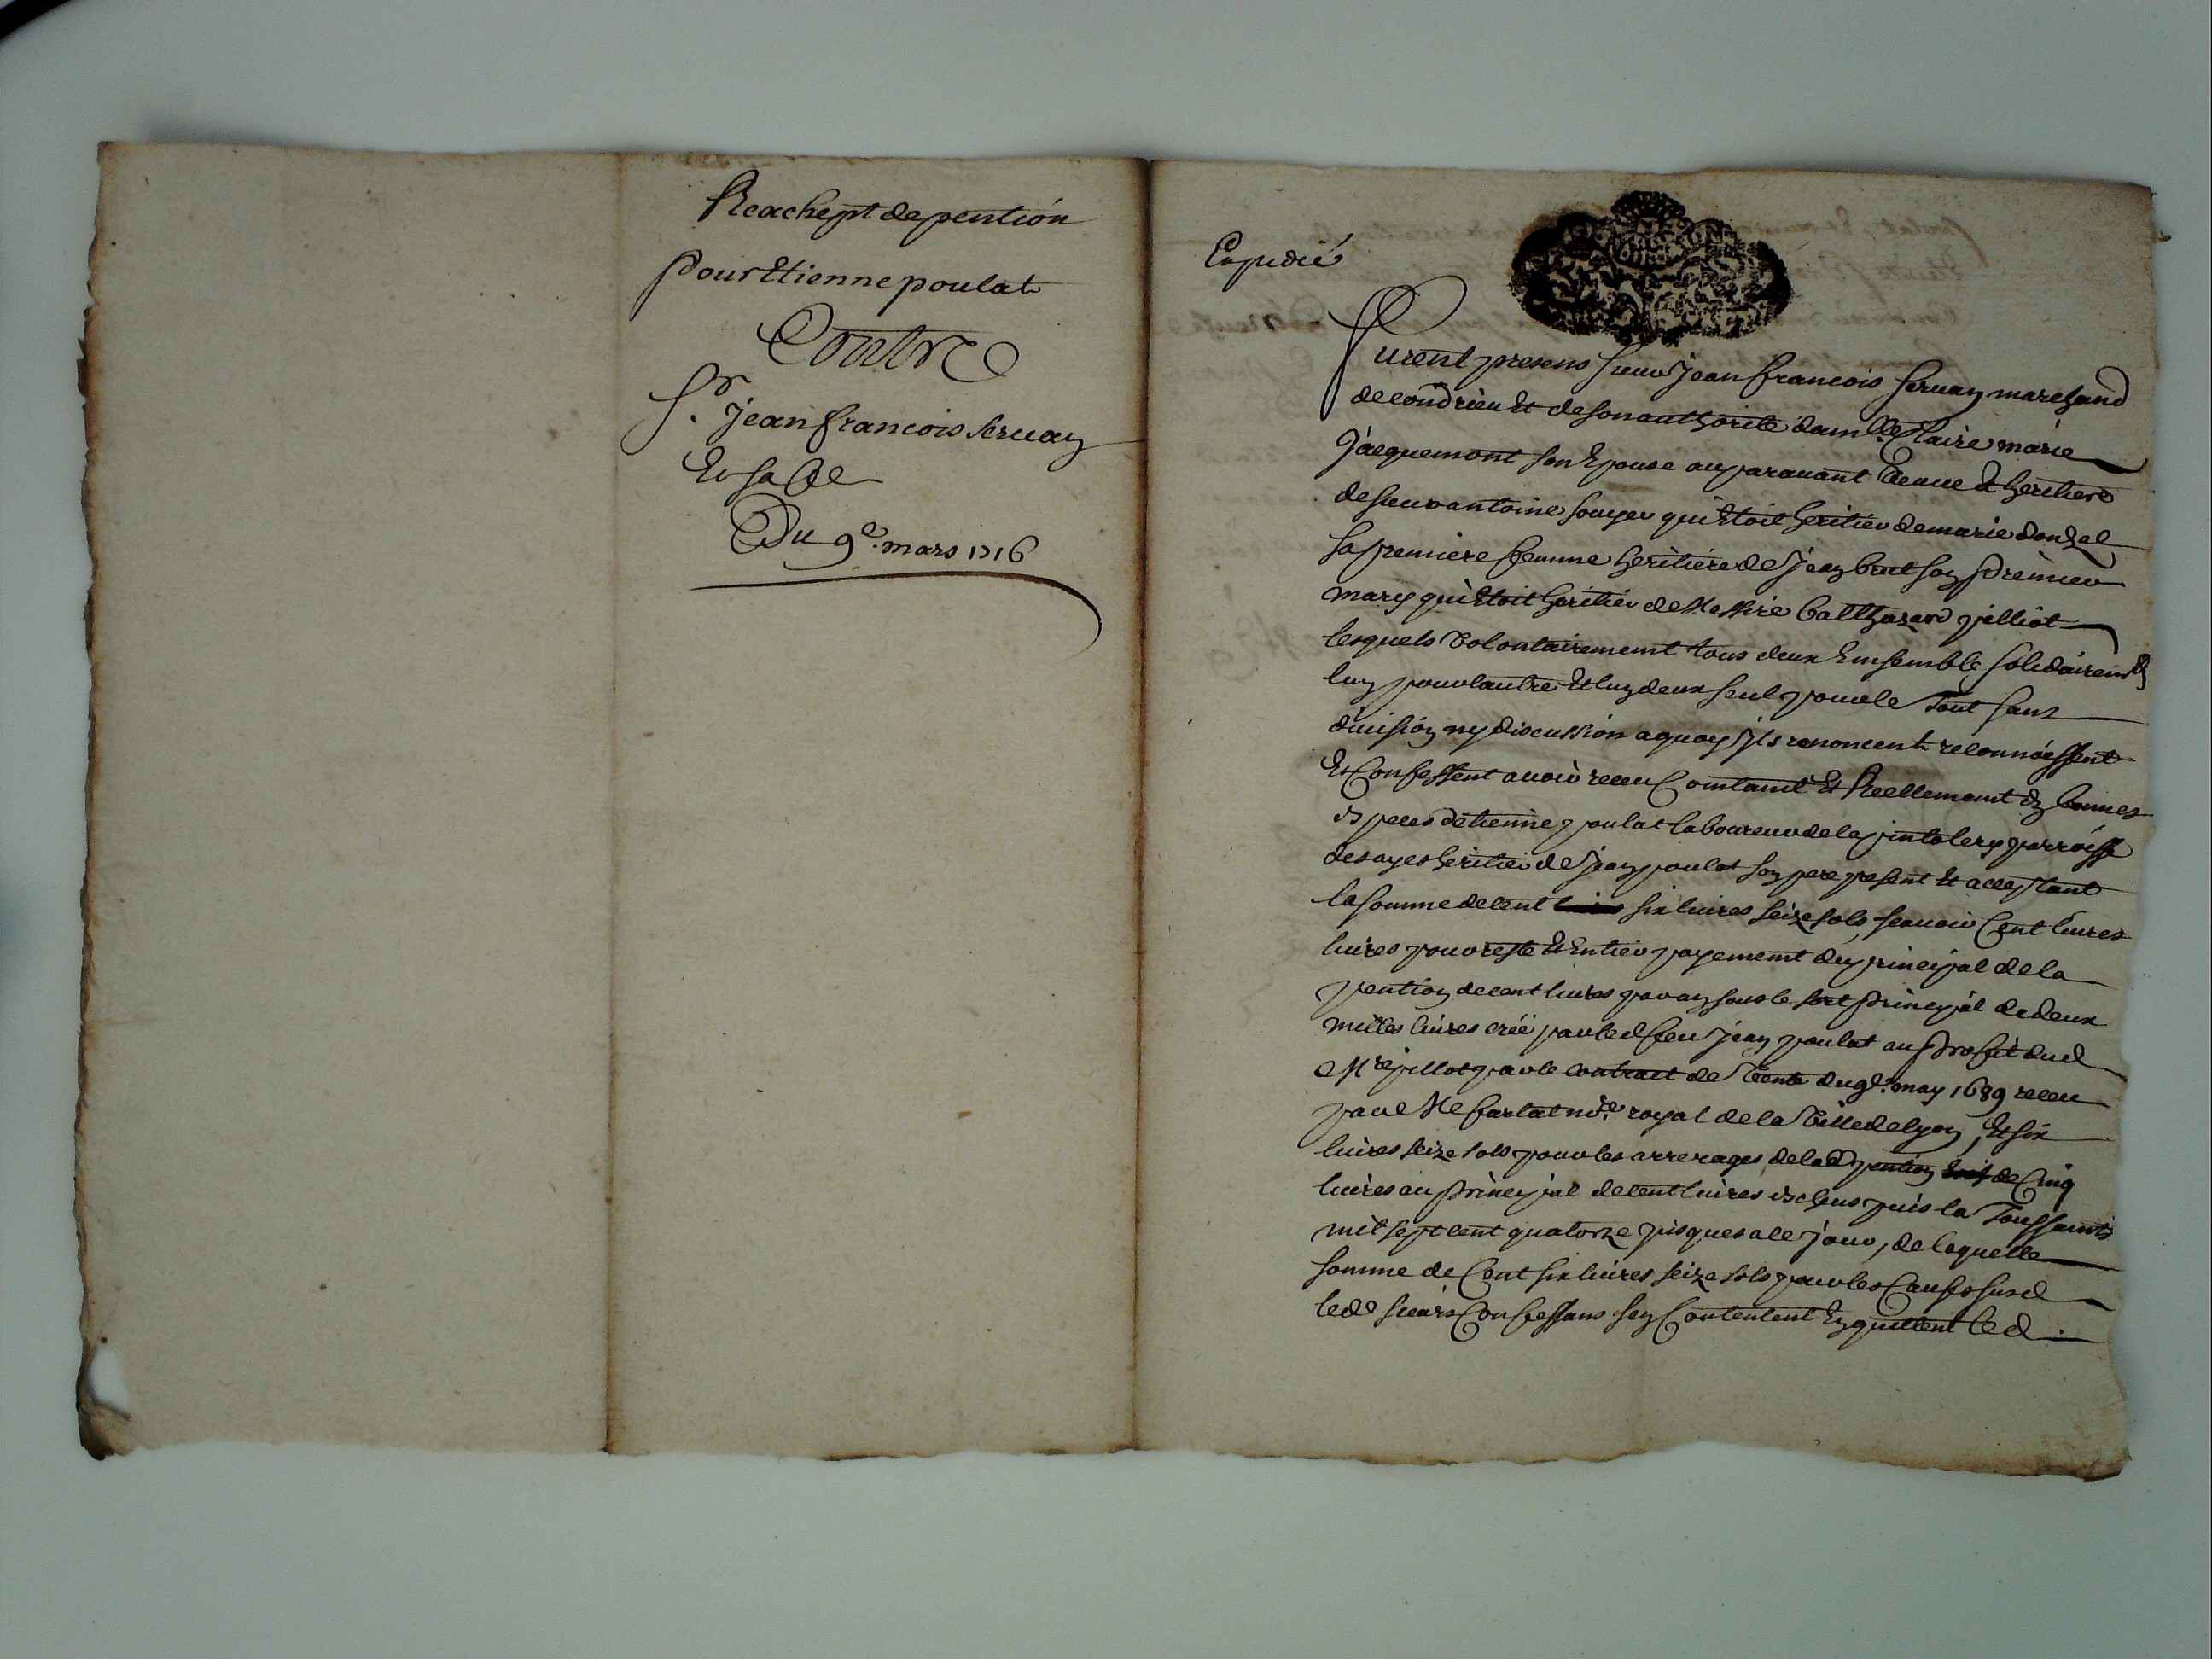 Reachept de pention
pour Etienne poulat
Contre
Sr. Jean francois Seruan
Et sa fe
Du 9e. mars 1716
Expedié
Furent presens sieur Jean francois seruan marchand
de condrieu Et de son authorité damlle Claire marie
Jacquemont son Epouse auparauant veuue Et heritiere
de sieur antoine souyer qui Etoit heritier de marie donzel
sa premiere femme heritiere de Jean brut son premier
mary qui Etoit heritier de Messire balthazard pilliot
lesquels volontairement tous deux Ensemble solidairemt
lun pour lautre Et lun deux seul pour le tout sans
diuision ny discussion a quoy Jls renoncent reconnoissent
Et Confessent auoir receu Comtamt Et Reellemamt En bonnes
Especes detienne poulat laboureur de la parroisse
des ayes heritier de Jean poulat son pere present Et acceptant
la somme de cent six liures seize sols, scauoir Cent liures
liures pour reste Et Entier payememt du principal de la
pention de cent liures par an sous le sort principal de deux
milles liures creé par led feu Jean poulat au proffit dud
Mre pillot par le contract de vente du 9e. may 1689 receu
par Me farlat nore royal de la ville de lyon, Et six
liures seize sols pour les arrerages de lad pention de Cinq
liures au principal de cent liures Escheus puis la Toussaints
mil sept cent quatorze jusques a ce jour, de laquelle
somme de Cent six liures seize sols pour les Causes susd
leds sieurs Confessans sen Contentent En quittent led